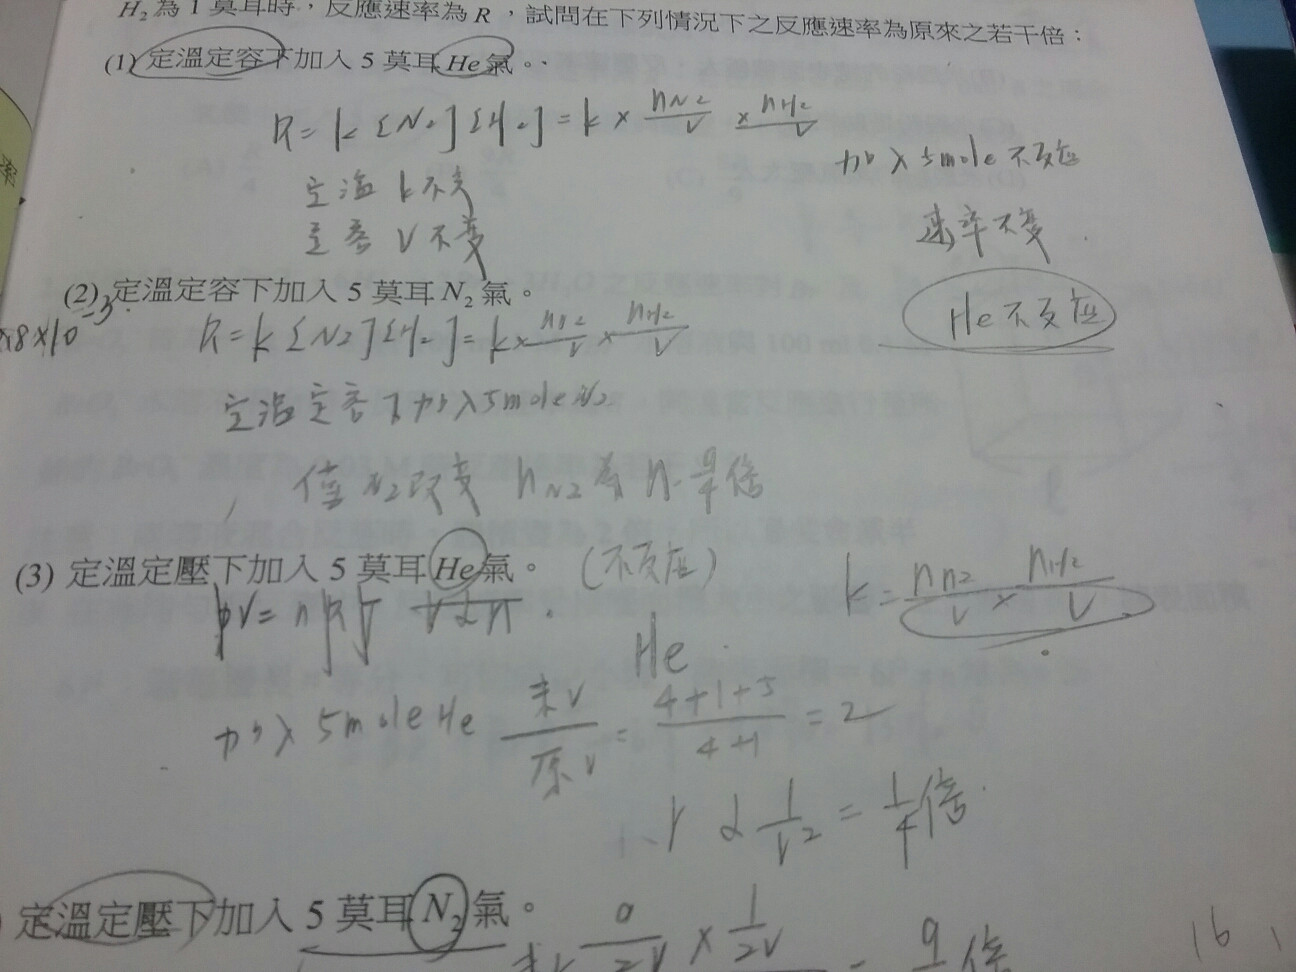 H₂ 為 1 莫耳時，反應速率為 R，試問在下列情況下之反應速率為原來之若干倍：
(1) 定溫定容下加入 5 莫耳 He 氣。
R = k [N₂] [H₂] = k × nN₂/V × nH₂/V
加入 5mole 不反應
定溫 k 不變
定容 V 不變
速率不變
(2) 定溫定容下加入 5 莫耳 N₂ 氣。
He 不反應
×8×10⁻³
R = k [N₂] [H₂] = k × nN₂/V × nH₂/V
定溫定容下加入 5mole N₂
僅 N₂ 改變 nN₂ 為 9/4 倍
(3) 定溫定壓下加入 5 莫耳 He 氣。 (不反應)
k = nn₂/V × nH₂/V
PV = nRT V α n
He
加入 5mole He 末V/原V = 4+1+5/4+1 = 2
r α 1/V² = 1/4 倍
定溫定壓下加入 5 莫耳 N₂ 氣。
9/2V × 1/2V = 9 倍
16